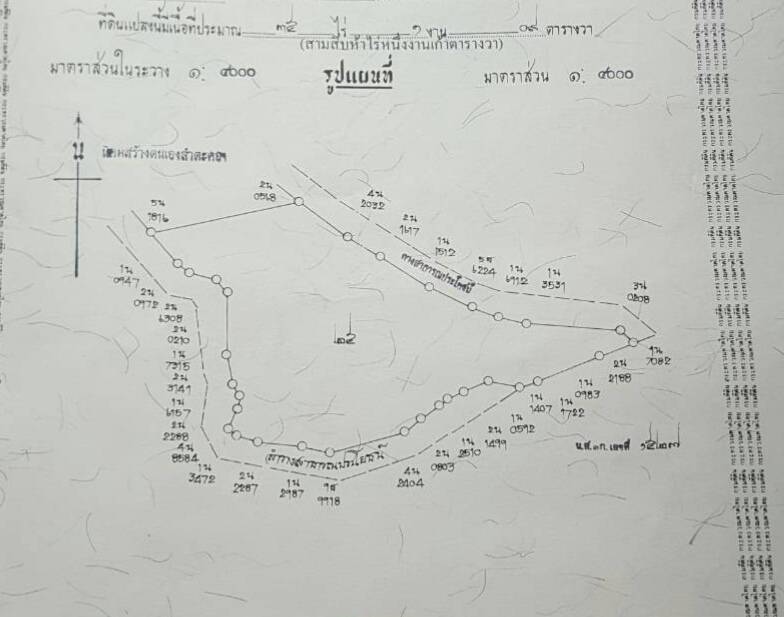 ที่ดินแปลงนี้มีเนื้อที่ประมาณ ๓๕ ไร่ ๑ งาน ๐๙ ตารางวา
(สามสิบห้าไร่หนึ่งงานเก้าตารางวา)
มาตราส่วนในระวาง ๑: ๔๐๐๐
รูปแผนที่
มาตราส่วน ๑: ๔๐๐๐
น
สร้างตนเองลำตะคอง
5น
1816
2น
0518
4น
2032
2น
1617
1น
1512
ทางสาธารณประโยชน์
5ส
6224
1น
6912
1น
3531
3น
0208
1น
0947
2น
0972
2น
6308
2น
0210
1น
7315
2น
3141
1น
6157
2น
2288
4น
8584
1น
3472
2น
2287
1น
2987
9918
4น
2404
2น
0803
1น
2510
2น
1499
1น
0592
1น
1407
1น
1722
1น
0983
2น
2188
1น
7082
๒๕
ลำรางสาธารณประโยชน์
น.ส.๓ก. เลขที่